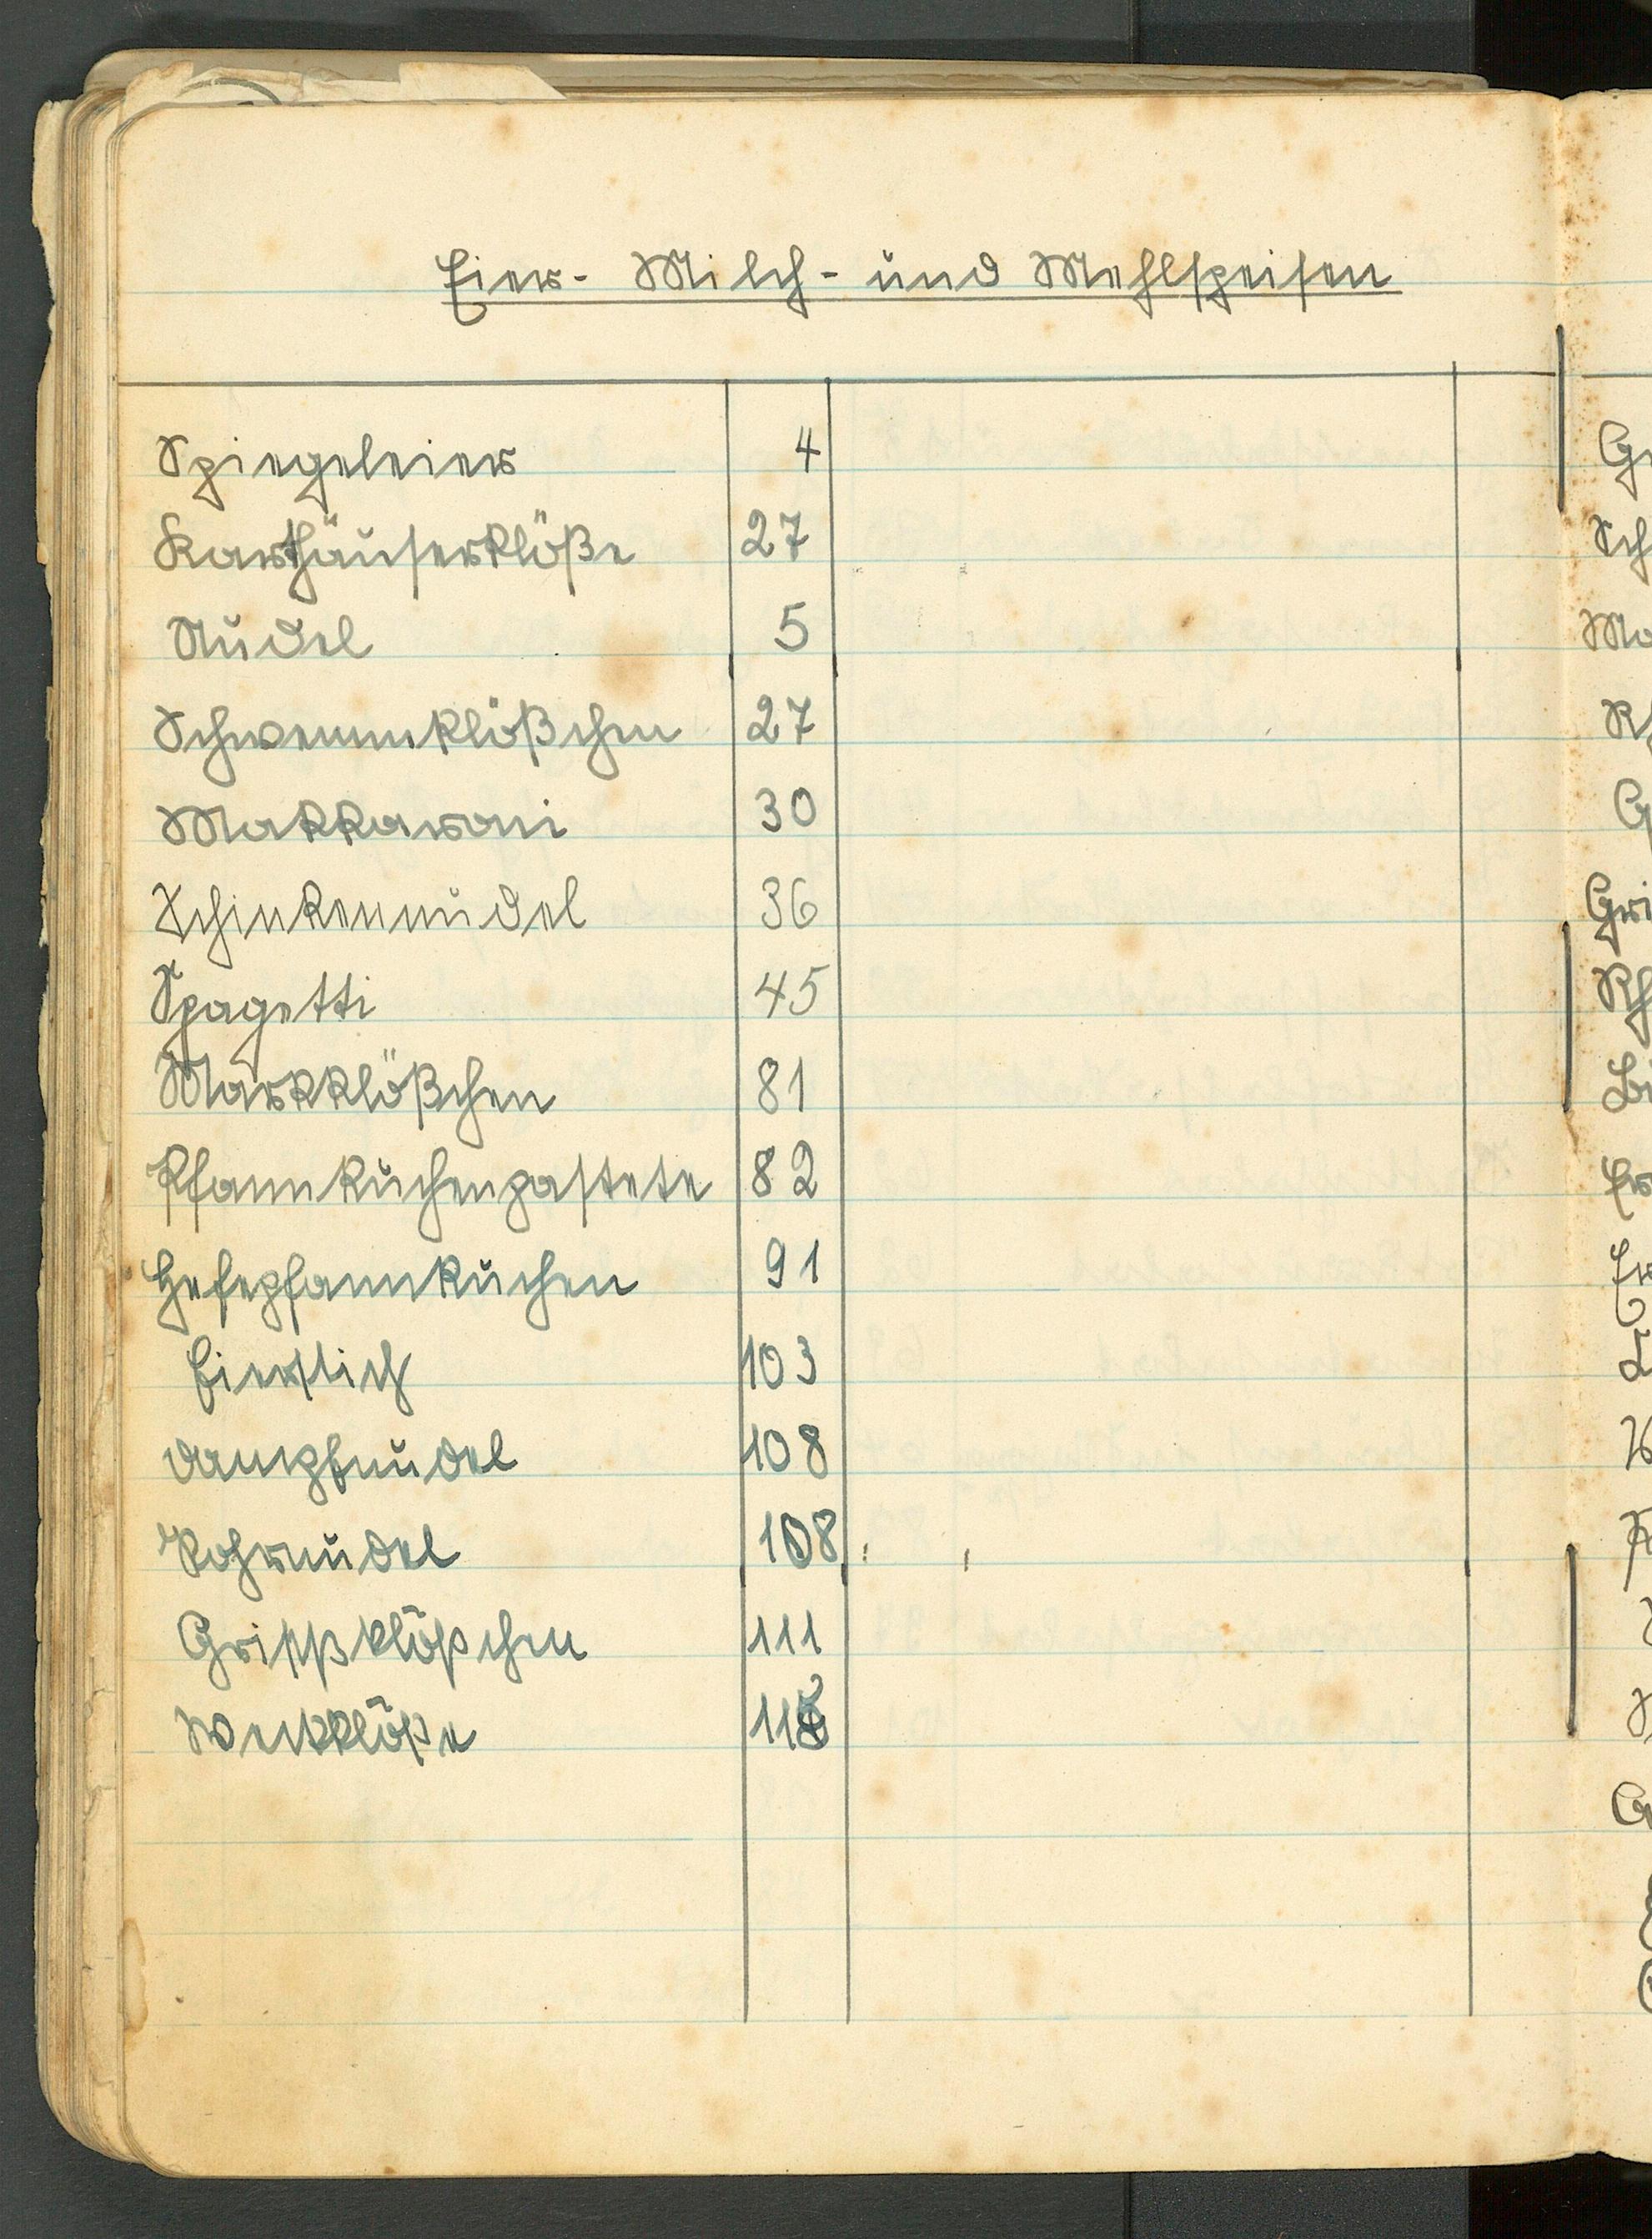 Eier- Milch- und Mehlspeisen
Spiegeleier 4
Karthäuserklöße 27
Nudel 5
Schwemmklößchen 27
Makkaroni 30
Schinkennudel 36
Spagetti 45
Markklößchen 81
Pfannkuchenpastete 82
Hefepfannkuchen 91
Eierstich 103
Dampfnudel 108
Rohrnudel 108
Griesßklößchen 111
Weckklöße